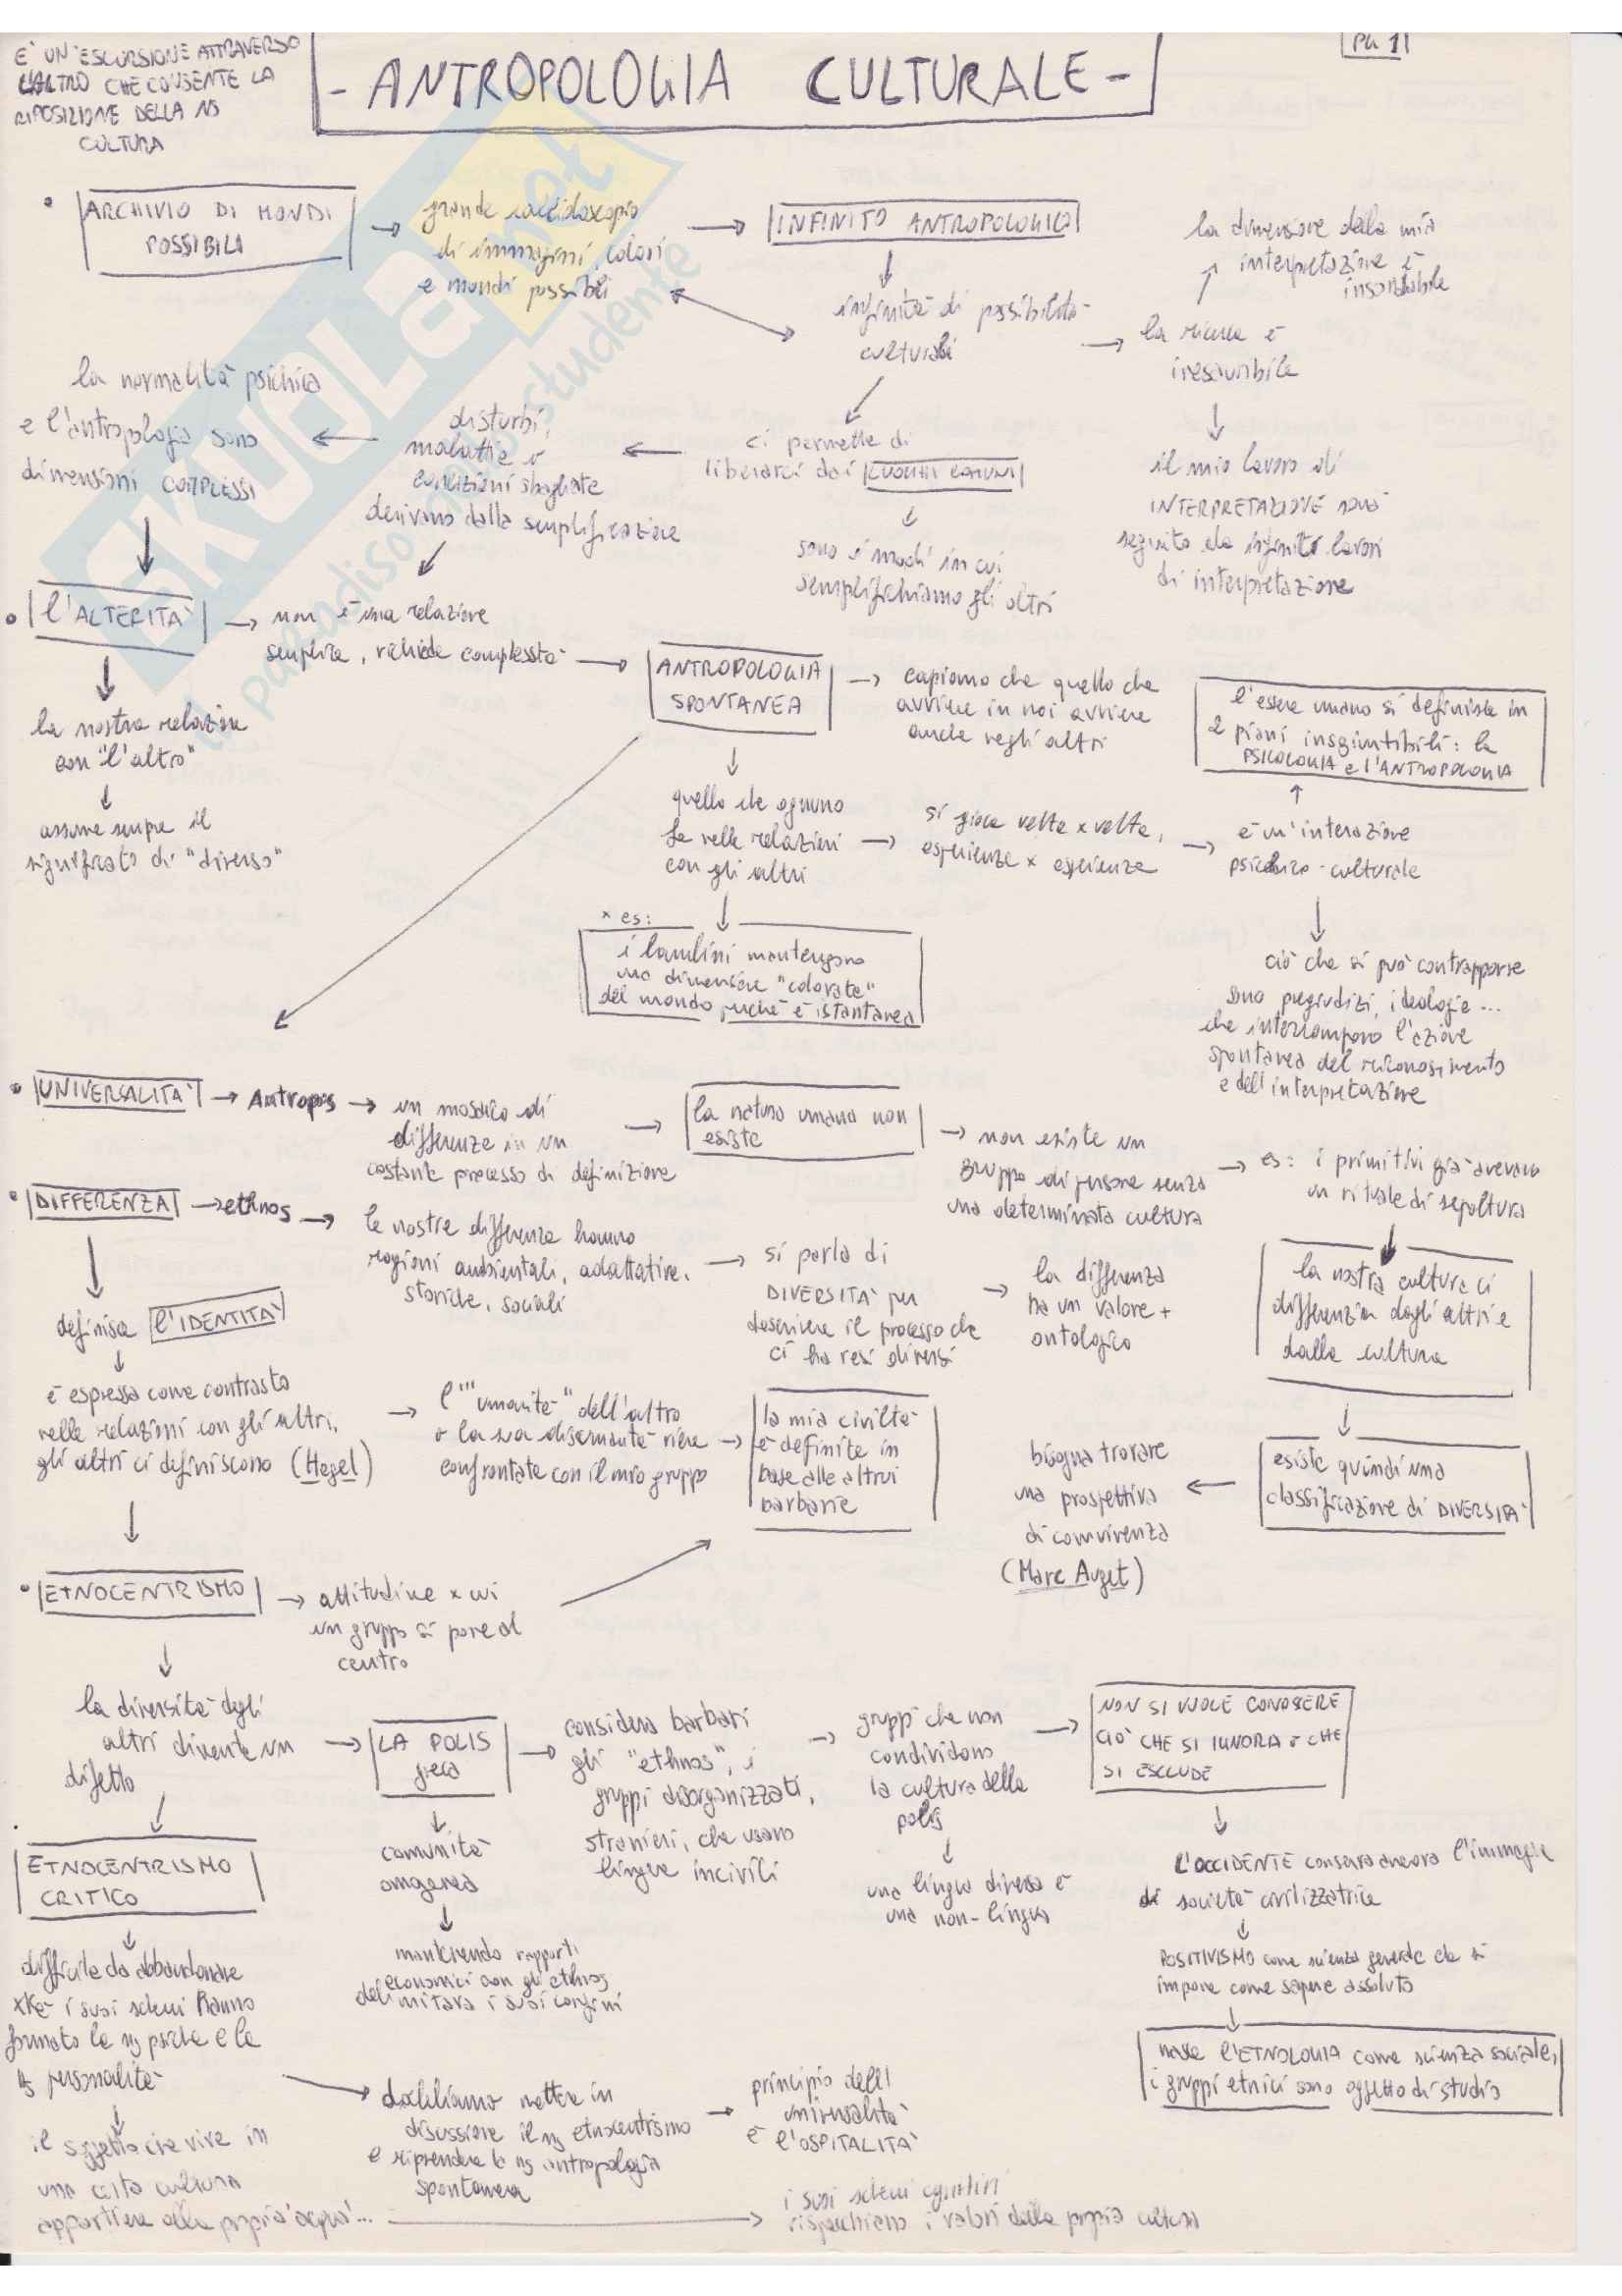 E' UN'ESCURSIONE ATTRAVERSO
L'ALTRO CHE CONSENTE LA
RIPOSIZIONE DELLA NS
CULTURA
- ANTROPOLOGIA CULTURALE -
PG 1
ARCHIVIO DI MONDI
POSSIBILI
grande caleidoscopio
di immagini, colori
e mondi possibili
INFINITO ANTROPOLOGICO
infinità di possibilità
culturali
la ricerca è
inesauribile
la dimensione della mia
interpretazione è
insondabile
il mio lavoro di
INTERPRETAZIONE sarà
seguito da infiniti lavori
di interpretazione
ci permette di
liberarci dai LUOGHI COMUNI
sono i modi in cui
semplifichiamo gli altri
disturbi,
malattie o
condizioni sbagliate
derivano dalla semplificazione
la normalità psichica
e l'antropologia sono
dimensioni COMPLESSI
SKUOLA.net
il paradiso dello studente
l'ALTERITA'
non è una relazione
semplice, richiede complessità
la nostra relazione
con "l'altro"
assume sempre il
significato di "diverso"
ANTROPOLOGIA
SPONTANEA
capiamo che quello che
avviene in noi avviene
anche negli altri
quello che ognuno
fa nelle relazioni
con gli altri
si gioca volta x volta,
esperienza x esperienza
è un'interazione
psichico-culturale
l'essere umano si definisce in
2 piani insgiuntibili: la
PSICOLOGIA e l'ANTROPOLOGIA
x es:
i bambini mantengono
una dimensione "colorata"
del mondo perché è istantanea
ciò che si può contrapporre
sono pregiudizi, ideologie...
che interrompono l'azione
spontanea del riconoscimento
e dell'interpretazione
UNIVERSALITA'
Antropos
un mosaico di
differenze in un
costante processo di definizione
la natura umana non
esiste
non esiste un
gruppo di persone senza
una determinata cultura
es: i primitivi già avevano
un rituale di sepoltura
DIFFERENZA
ethnos
le nostre differenze hanno
ragioni ambientali, adattative,
storiche, sociali
si parla di
DIVERSITA' per
descrivere il processo che
ci ha resi diversi
la differenza
ha un valore +
ontologico
la nostra cultura ci
differenzia dagli altri e
dalla cultura
definisce l'IDENTITA'
è espressa come contrasto
nelle relazioni con gli altri,
gli altri ci definiscono (Hegel)
l'"umanità" dell'altro
o la sua disumanità viene
confrontata con il mio gruppo
la mia civiltà
è definita in
base alle altrui
barbarie
bisogna trovare
una prospettiva
di convivenza
(Marc Auget)
esiste quindi una
classificazione di DIVERSITA'
ETNOCENTRISMO
attitudine x cui
un gruppo si pone al
centro
la diversità degli
altri diventa un
difetto
LA POLIS
greca
considera barbari
gli "ethnos", i
gruppi disorganizzati,
stranieri, che usano
lingue incivili
gruppi che non
condividono
la cultura della
polis
una lingua diversa è
una non-lingua
NON SI VUOLE CONOSCERE
CIÒ CHE SI IGNORA e CHE
SI ESCLUDE
L'OCCIDENTE conserva ancora l'immagine
di società civilizzatrice
POSITIVISMO come scienza generale che si
impone come sapere assoluto
nasce l'ETNOLOGIA come scienza sociale,
i gruppi etnici sono oggetto di studio
comunità
omogenea
mantenendo rapporti
economici con gli ethnos
delimitava i suoi confini
ETNOCENTRISMO
CRITICO
difficile da abbandonare
xké i suoi schemi hanno
formato la ns psiche e la
ns personalità
il soggetto che vive in
una certa cultura
appartiene alla propria 'acqua'...
dobbiamo mettere in
discussione il ns etnocentrismo
e riprendere la ns antropologia
spontanea
principio dell'
universalità
è l'OSPITALITA'
i suoi schemi cognitivi
rispecchiano i valori della propria cultura